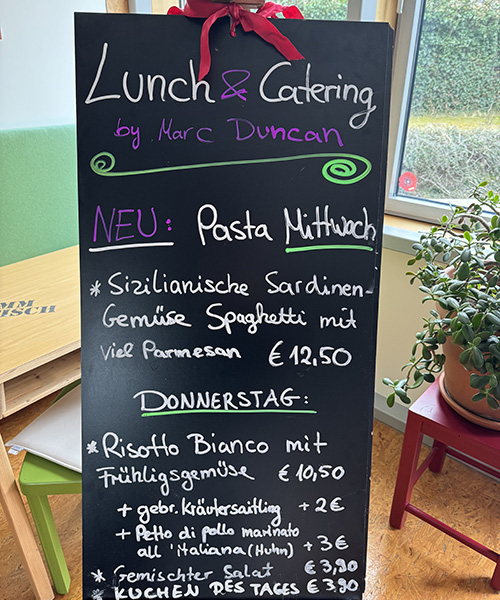 Lunch & Catering
by Marc Duncan
NEU: Pasta Mittwoch
* Sizilianische Sardinen-
Gemüse Spaghetti mit
viel Parmesan €12,50
DONNERSTAG:
* Risotto Bianco mit
Frühligsgemüse €10,50
+ gebr. Kräutersaitling +2€
+ Petto di pollo marinato
all'italiana (Huhn) +3€
* Gemischter Salat €3,90
* KUCHEN DES TAGES €3,90